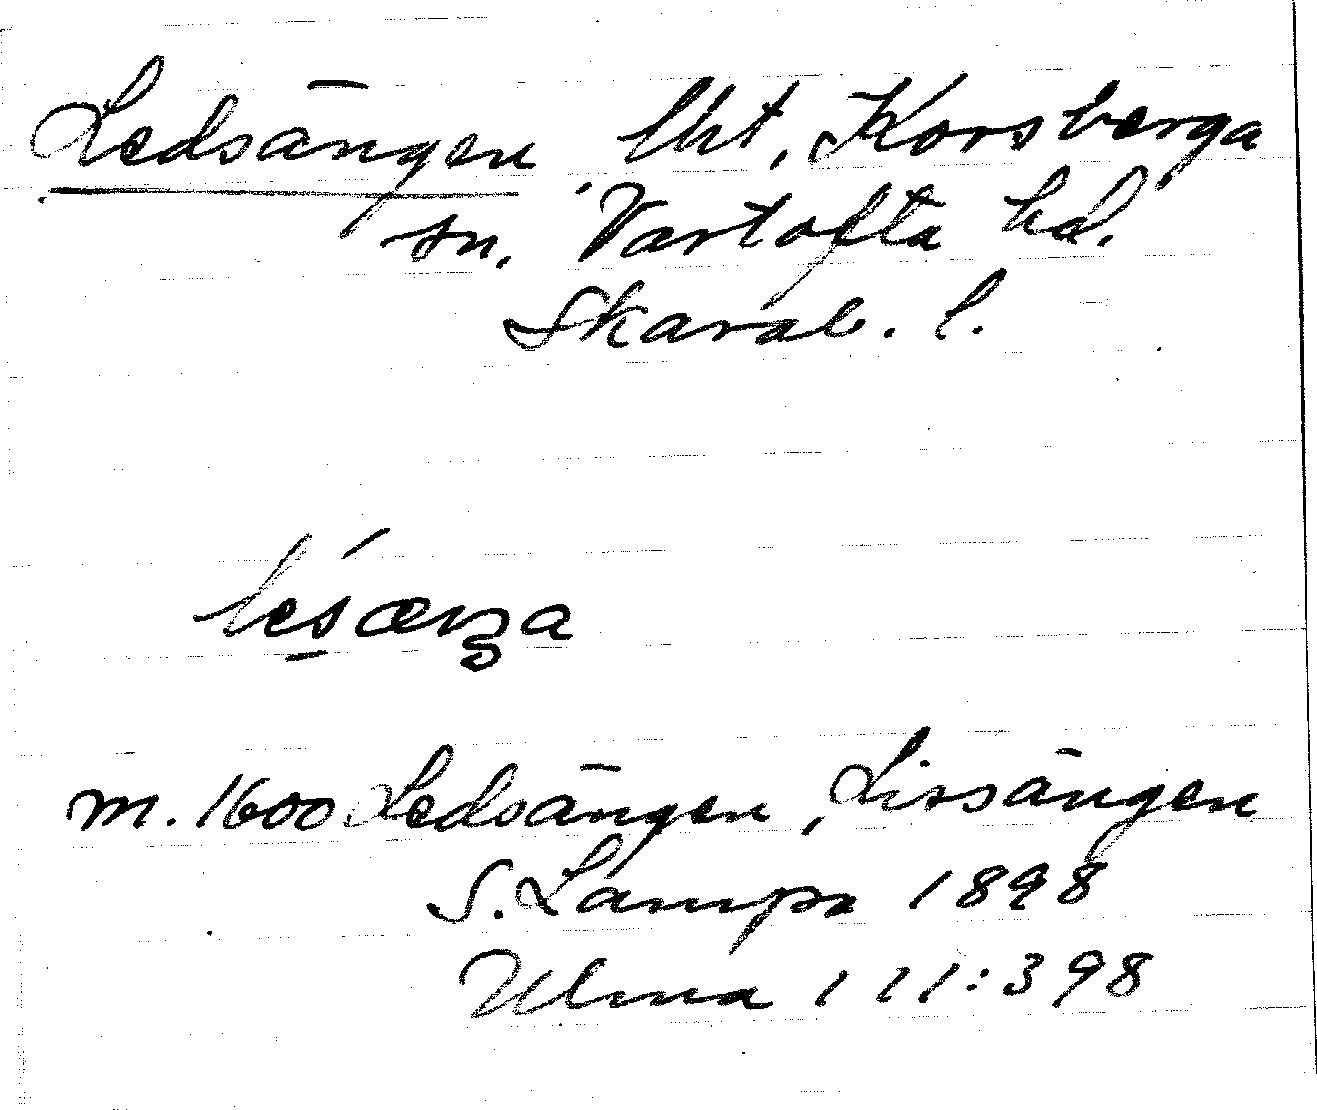 Ledsängen lht, Korsberga
sn. Vartofta hd.
Skarab. l.
m. 1600 Ledsängen, Lissängen
S. Lampa 1898
Ulma 111:398